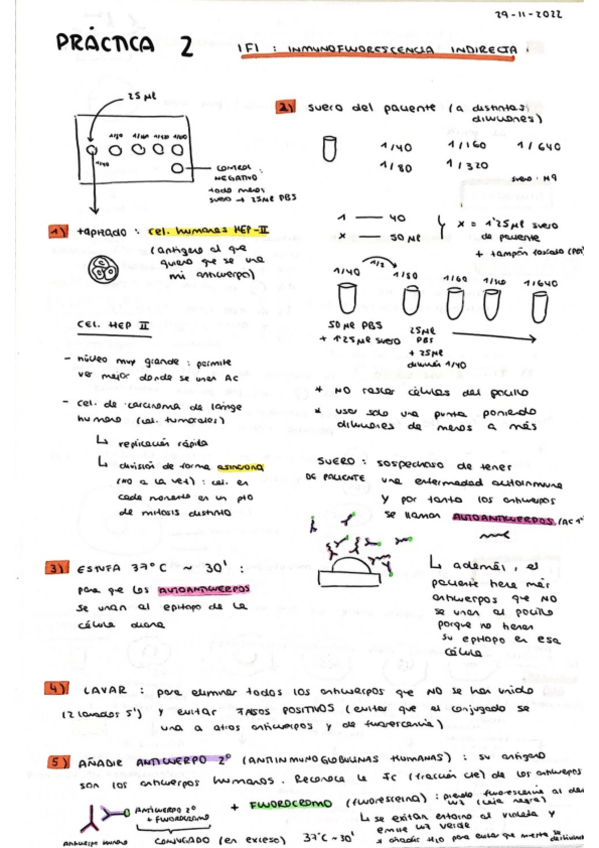 29-11-2022
PRÁCTICA 2 IFI : INMUNOFLUORESCENCIA INDIRECTA.
25 µl
1/80 1/160 1/320 1/640
1/40
CONTROL
NEGATIVO
todo menos
suero → 25µl PBS
2) suero del paciente (a distintas
diluciones)
1/40 1/160 1/640
1/80 1/320
suero : Nº9
1 — 40
x — 50 µl
x = 1'25µl suero
de paciente
+ tampón fosfato (PBS)
1/2
1/40 1/80 1/160 1/320 1/640
50 µl PBS
+ 1'25µl suero
25µl
PBS
+ 25µl
dilución 1/40
* NO rascar células del pocillo
* usar solo una punta poniendo
diluciones de menos a más
1) tapizado : cel. humanas HEP-II
(antígeno al que
quiero que se una
mi anticuerpo)
CEL. HEP II
- núcleo muy grande : permite
ver mejor donde se unen AC
- cel. de carcinoma de laringe
humano (cel. tumorales)
↳ replicación rápida
↳ división de forma asíncrona
(no a la vez) : cel. en
cada momento en un pto
de mitosis distinto
SUERO : sospechoso de tener
DE PACIENTE una enfermedad autoinmune
y por tanto los anticuerpos
se llaman AUTOANTICUERPOS (AC 1º
↳ además, el
paciente tiene más
anticuerpos que NO
se unen al pocillo
porque no tienen
su epítopo en esa
célula
3) ESTUFA 37°C ~ 30' :
para que los AUTOANTICUERPOS
se unan al epítopo de la
célula diana
4) LAVAR : para eliminar todos los anticuerpos que NO se han unido
(2 lavados 5') y evitar FALSOS POSITIVOS (evitar que el conjugado se
una a otros anticuerpos y de fluorescencia)
5) AÑADIR ANTICUERPO 2º (ANTIINMUNOGLOBULINAS HUMANAS) : su antígeno
son los anticuerpos humanos. Reconoce la Fc (fracción cte) de los anticuerpos
ANTICUERPO 2º
+ FLUOROCROMO
+ FLUOROCROMO (fluoresceína) : pierde fluorescencia al dar
luz (caja negra)
↳ se excitan entorno al violeta y
emite luz verde
Anticuerpo humano CONJUGADO (en exceso) 37°C ~30'